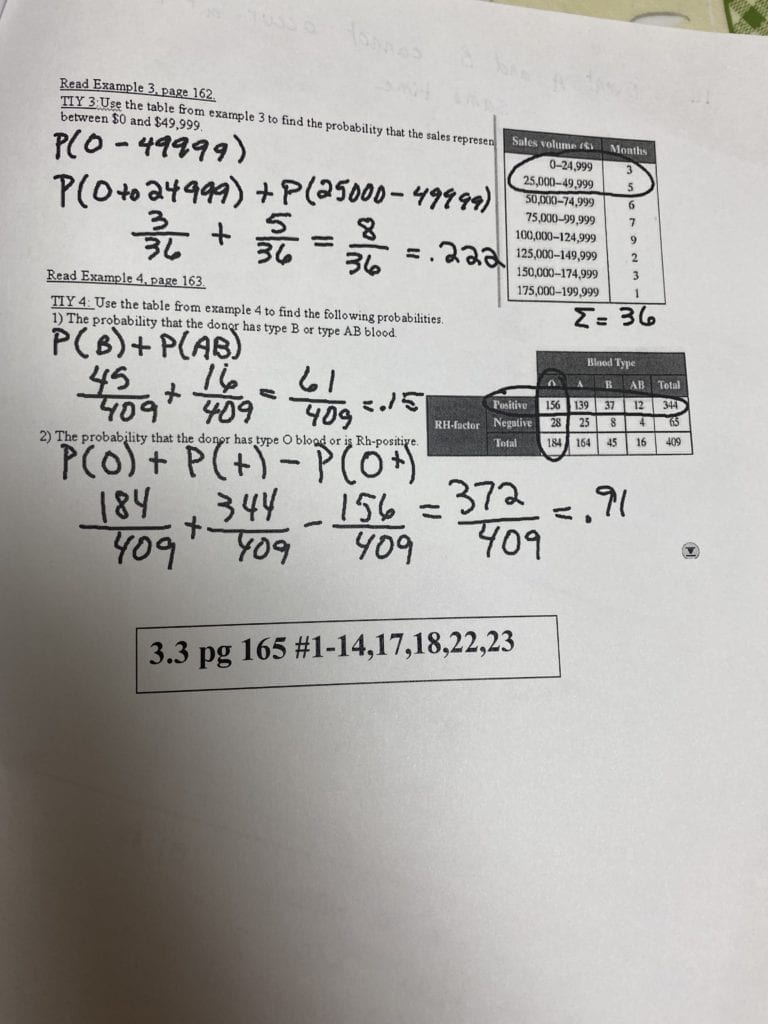 Read Example 3, page 162.
TIY 3: Use the table from example 3 to find the probability that the sales represen
between $0 and $49,999.
P(0 - 49999)
P(0 to 24999) + P(25000 - 49999)
3/36 + 5/36 = 8/36 = .222
Sales volume ($) Months
0–24,999 3
25,000–49,999 5
50,000–74,999 6
75,000–99,999 7
100,000–124,999 9
125,000–149,999 2
150,000–174,999 3
175,000–199,999 1
Σ = 36
Read Example 4, page 163.
TIY 4: Use the table from example 4 to find the following probabilities.
1) The probability that the donor has type B or type AB blood.
P(B) + P(AB)
45/409 + 16/409 = 61/409 = .15
Blood Type
O A B AB Total
RH-factor
Positive 156 139 37 12 344
Negative 28 25 8 4 65
Total 184 164 45 16 409
2) The probability that the donor has type O blood or is Rh-positive.
P(O) + P(+) - P(O+)
184/409 + 344/409 - 156/409 = 372/409 = .91
3.3 pg 165 #1-14,17,18,22,23